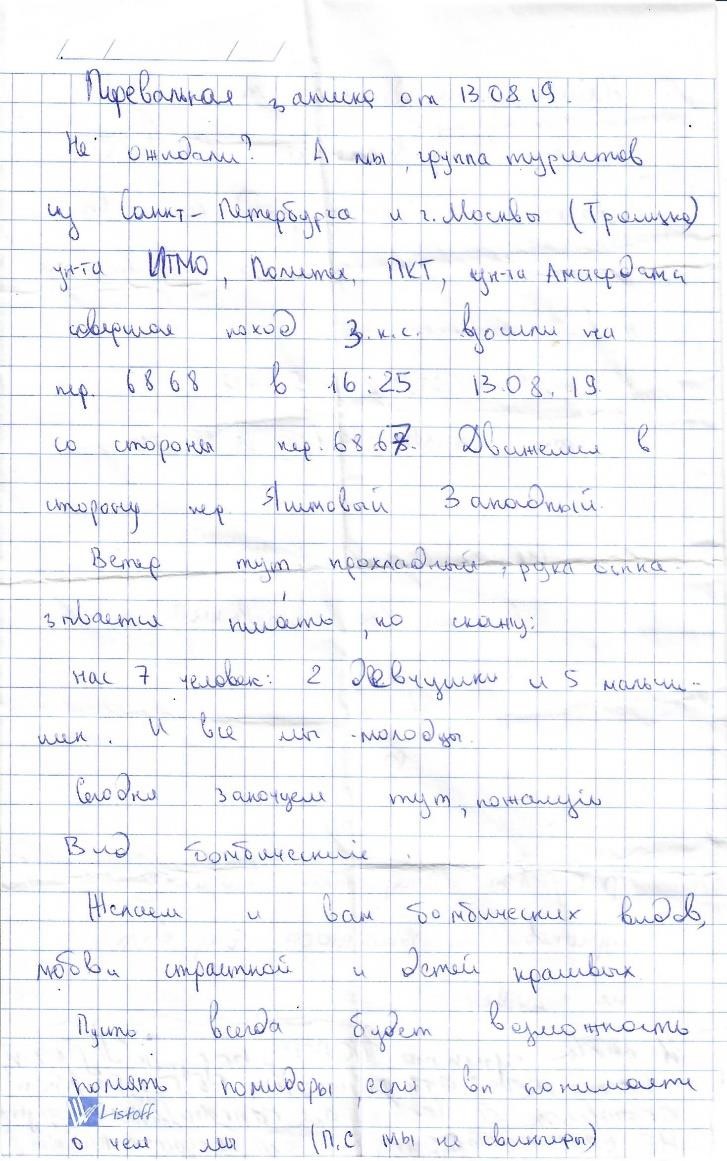 Перевальная записка от 13.08.19.
Не ожидали? А мы, группа туристов
из Санкт-Петербурга и г. Москвы (Троицка)
ун-та ИТМО, Политех, ПКТ, ун-та Амстердама
совершая поход 3 к.с. взошли на
пер. 6868 в 16:25 13.08.19
со стороны пер. 6867. Движемся в
сторону пер Яшмовый Западный.
Ветер тут прохладный, рука отка-
зывается писать, но скажу:
нас 7 человек: 2 девчушки и 5 мальчи-
шек. И все мы молодцы.
Сегодня заночуем тут, пожалуй
Вид бомбический.
Желаем и вам бомбических видов,
любви страстной и детей красивых
Пусть всегда будет возможность
помять помидоры, если вы понимаете
Listoff
о чем мы (П.С мы не свингеры)